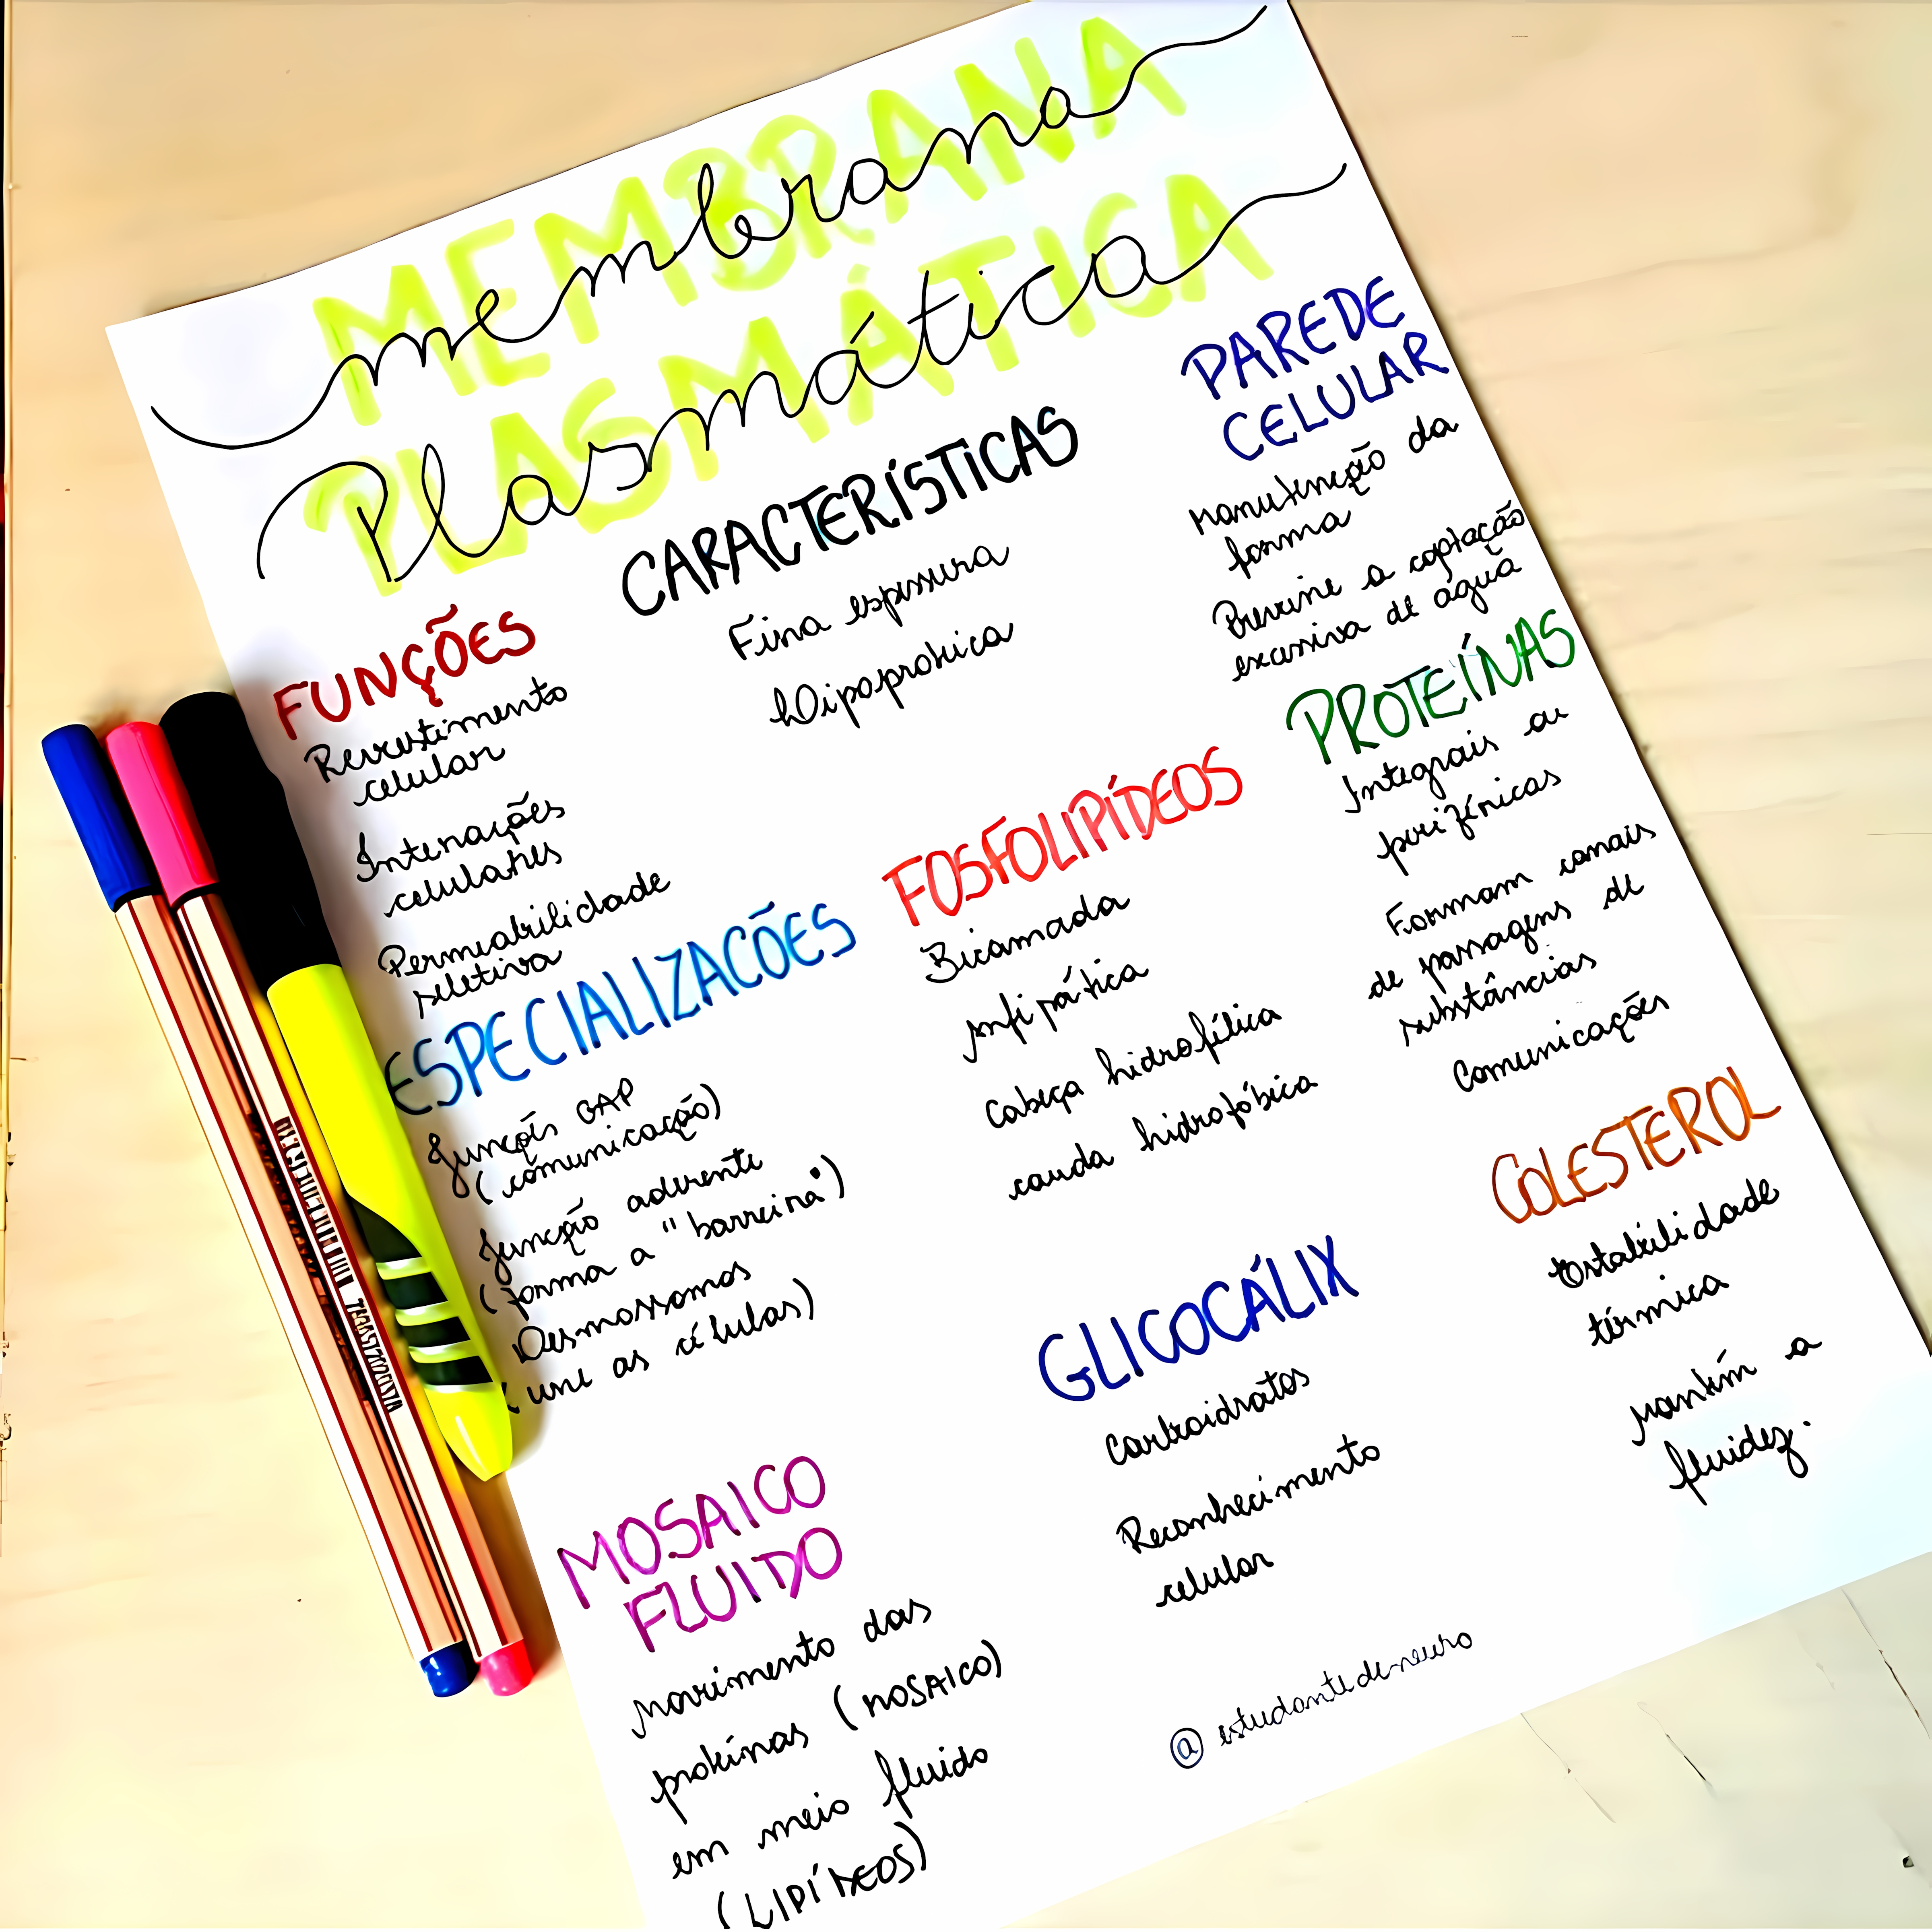 MEMBRANA
membrana
PLASMÁTICA
Plasmática
FUNÇÕES
Revestimento
celular
Interações
celulares
Permeabilidade
seletiva
CARACTERÍSTICAS
Fina espessura
Lipoproteica
PAREDE
CELULAR
Manutenção da
forma
Previne a captação
excessiva de água
PROTEÍNAS
Integrais ou
periféricas
Formam canais
de passagens de
substâncias
Comunicações
FOSFOLIPÍDEOS
Bicamada
Anfipática
Cabeça hidrofílica
cauda hidrofóbica
ESPECIALIZACÕES
Junções GAP
(comunicação)
Junção aderente
(forma a "barreira")
Desmossomos
(une as células)
COLESTEROL
Estabilidade
térmica
Mantém a
fluidez.
GLICOCÁLIX
Carboidratos
Reconhecimento
celular
MOSAICO
FLUIDO
Movimento das
proteínas (MOSAICO)
em meio fluido
(LIPÍDEOS)
@estudantede-neuro